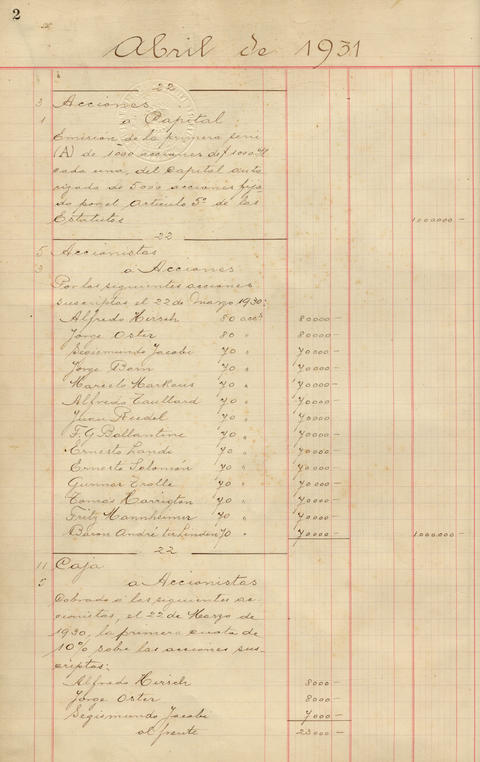 2
Abril de 1931
22
3 Acciones
1 a Capital
Emisión de la primera serie
(A) de 1000 acciones de $ 1000 m/l
cada una, del capital auto
rizado de 5000 acciones fija
do por el Artículo 5º de los
Estatutos 1000000 -
22
5 Accionistas
3 a Acciones
Por las siguientes acciones
suscriptas el 22 de Marzo 1930:
Alfredo Hirsch 80 accs 80000 -
Jorge Oster 80 " 80000 -
Segismundo Jacobi 70 " 70000 -
Jorge Born 70 " 70000 -
Marcelo Markous 70 " 70000 -
Alfredo Taullard 70 " 70000 -
Juan Riedel 70 " 70000
F. G. Ballantine 70 " 70000 -
Ernesto Lande 70 " 70000 -
Ernesto Salomón 70 " 70000 -
Gunnar Trolle 70 " 70000 -
Tomas Harrigton 70 " 70000 -
Fritz Mannheimer 70 " 70000 -
Baron André ter Linden 70 " 70000 - 1000000 -
22
11 Caja
5 a Accionistas
Cobrado a los siguientes ac-
cionistas, el 22 de Marzo de
1930, la primera cuota de
10% sobre las acciones sus-
criptas:
Alfredo Hirsch 8000 -
Jorge Oster 8000 -
Segismundo Jacobi 7000 -
al frente 23000 -